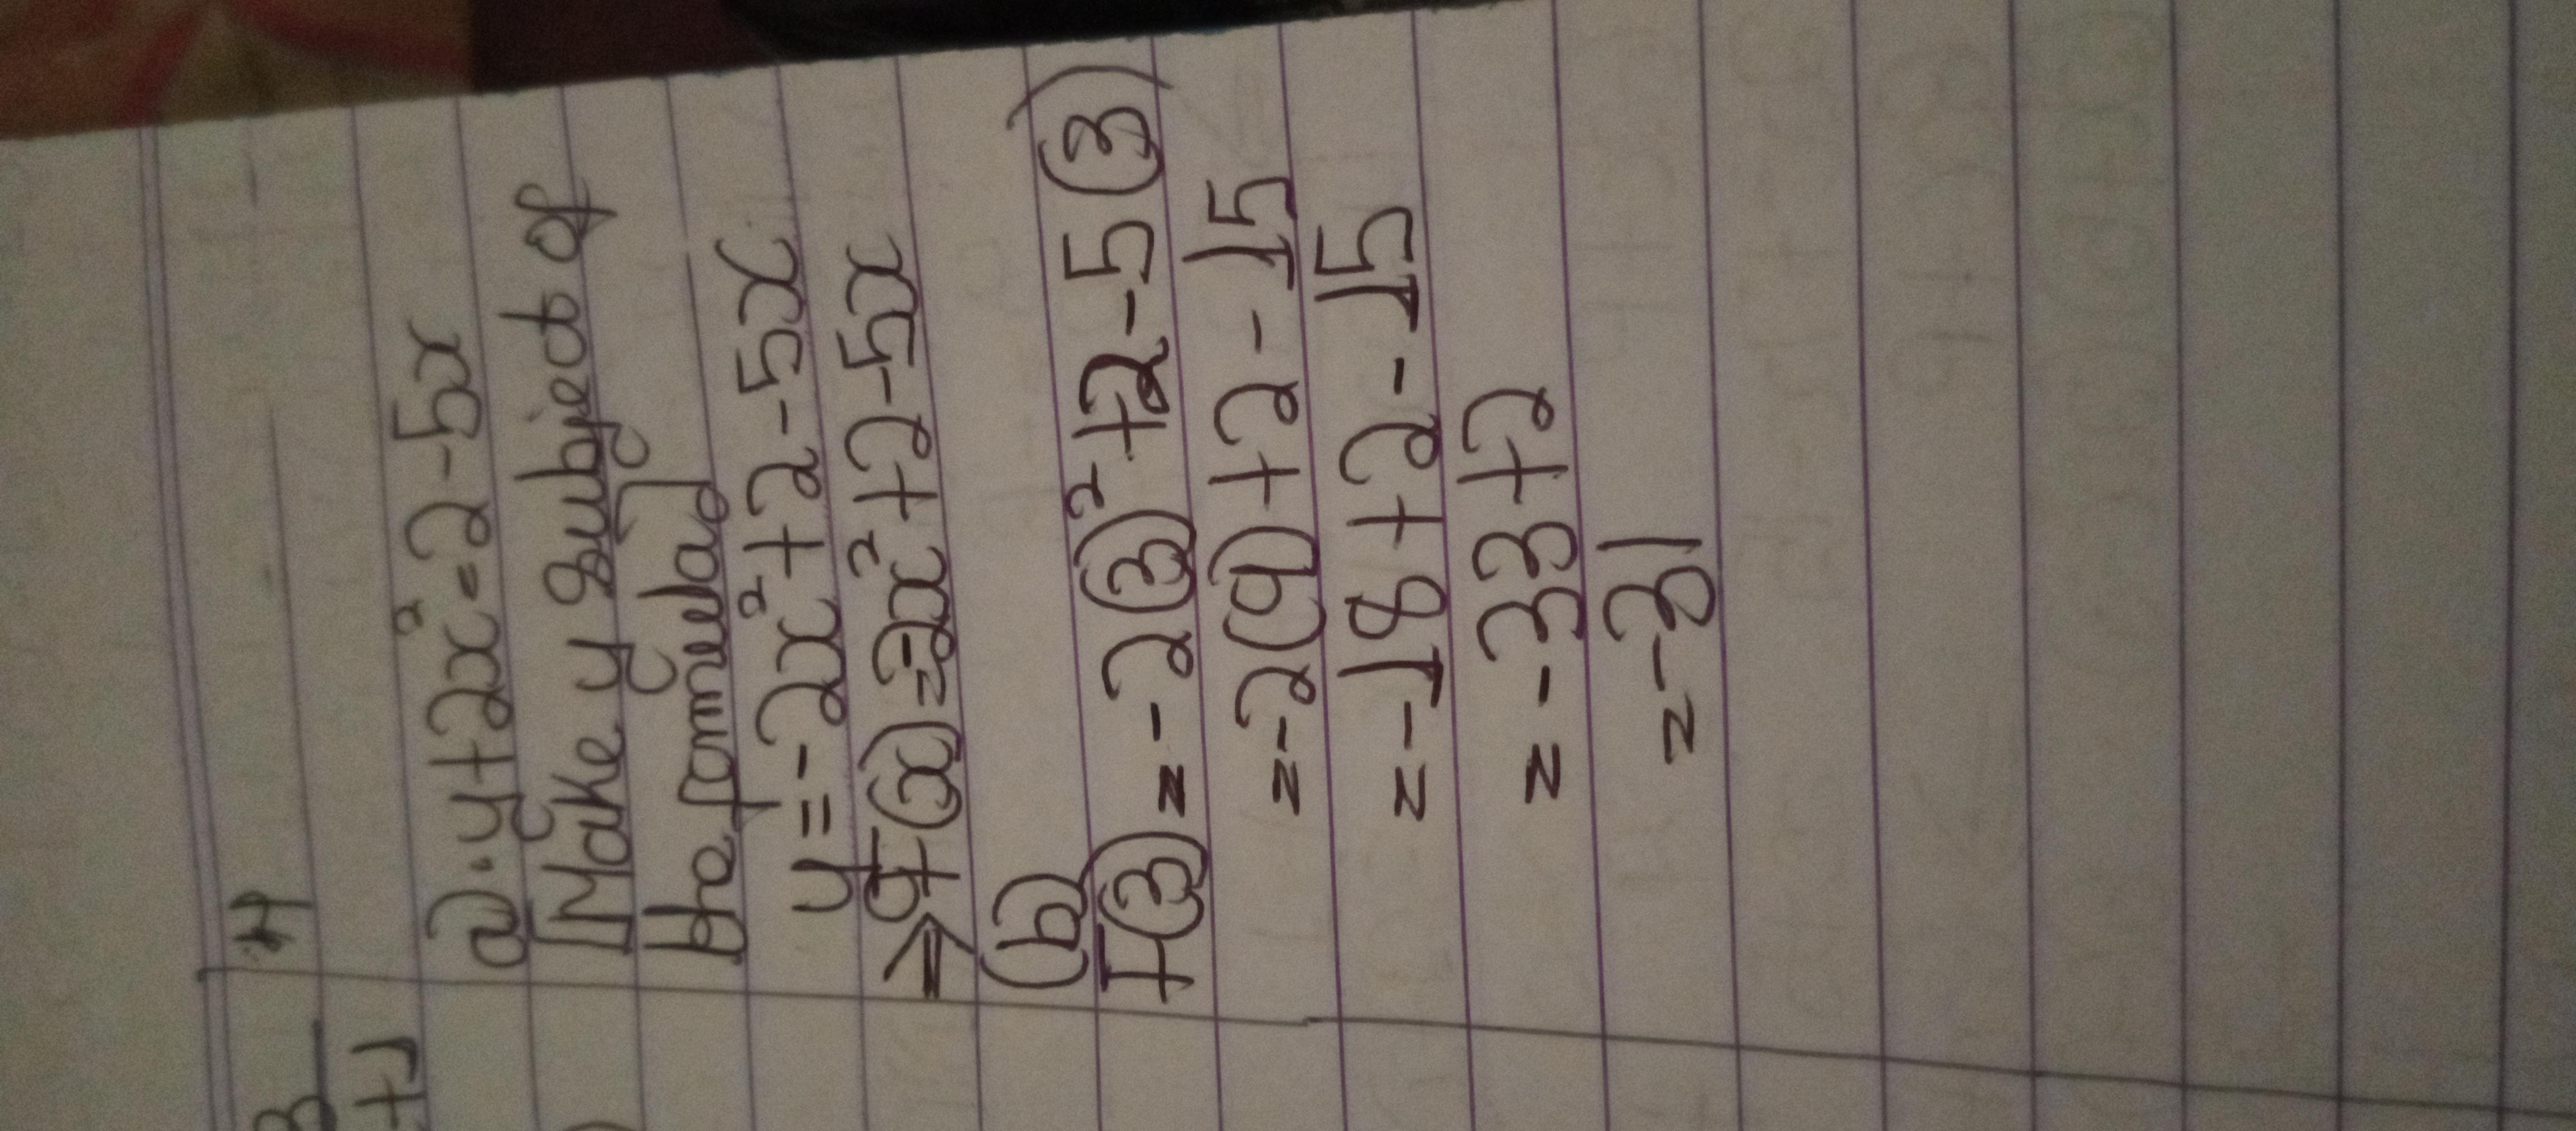 4
3
+1
a). y+2x²=2-5x
[Make y subject of
the formula]
y=-2x²+2-5x
⇒ f(x)=-2x²+2-5x
(b)
f(3)=-2(3)²+2-5(3)
=-2(9)+2-15
=-18+2-15
=-33+2
=-31